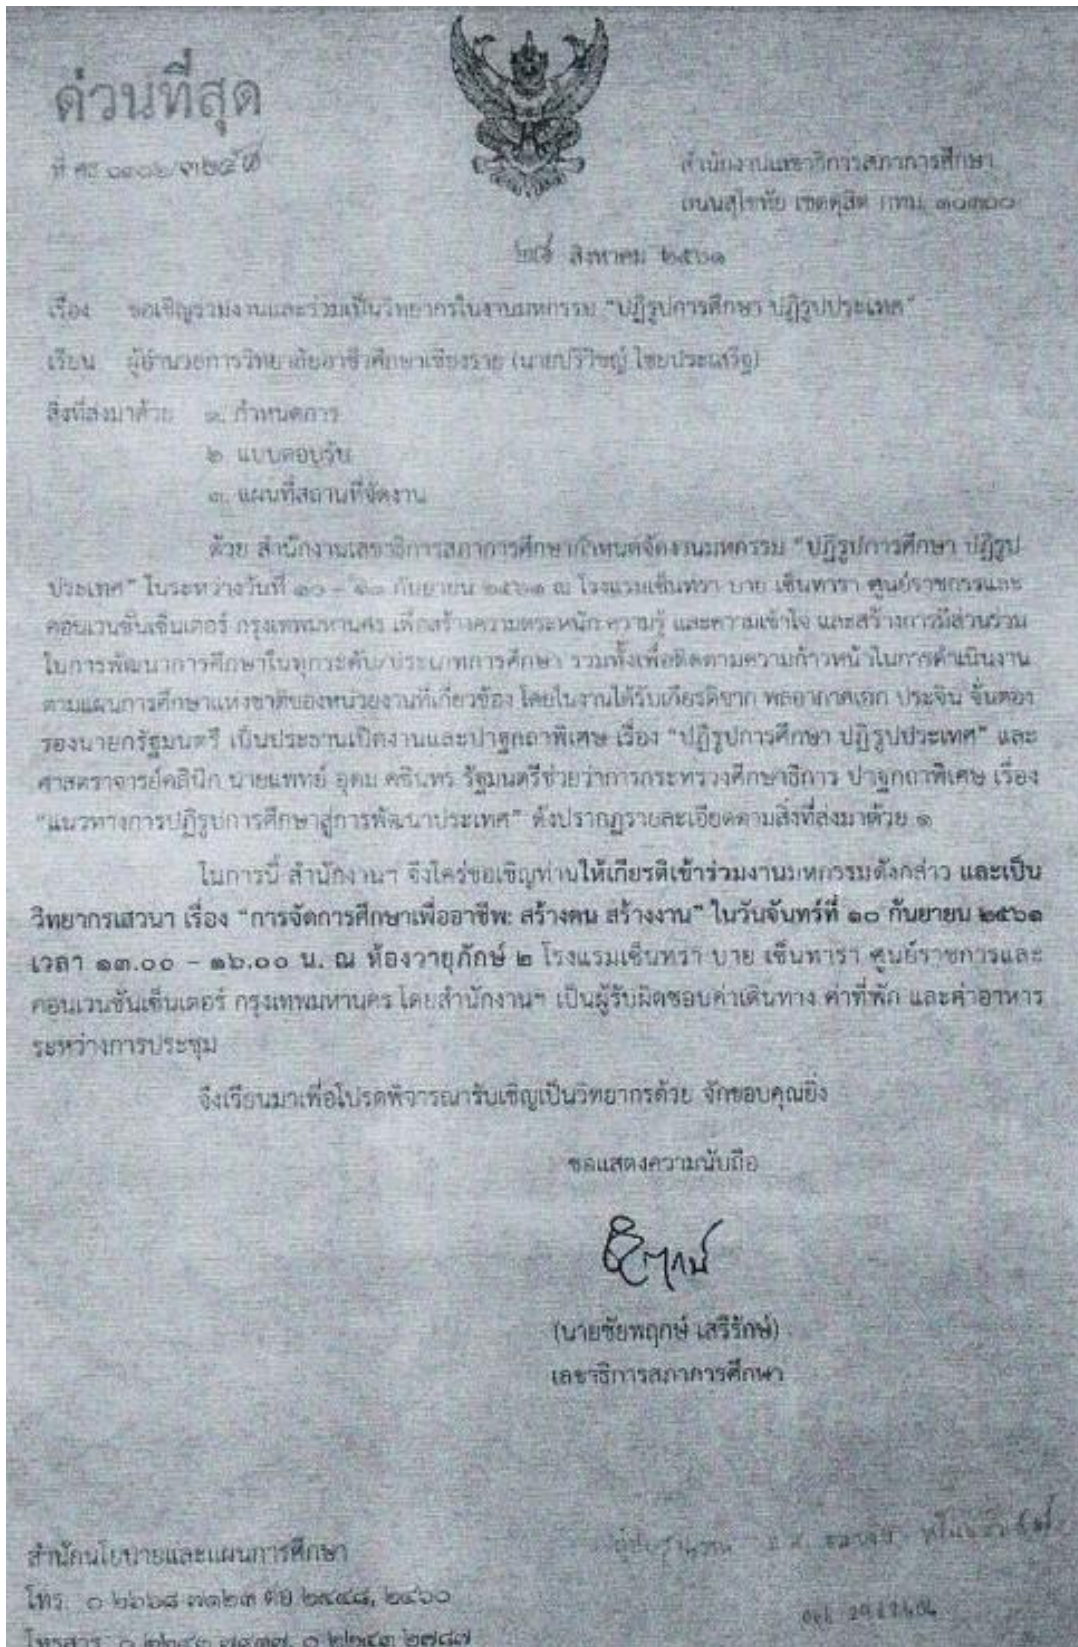 ด่วนที่สุด
ที่ ศธ
สำนักงานเลขาธิการสภาการศึกษา
ถนนสุโขทัย เขตดุสิต กทม. ๑๐๓๐๐
สิงหาคม ๒๕๖๑
เรื่อง ขอเชิญร่วมงานและร่วมเป็นวิทยากรในงานมหกรรม "ปฏิรูปการศึกษา ปฏิรูปประเทศ"
เรียน ผู้อำนวยการวิทยาลัยอาชีวศึกษาเชียงราย
สิ่งที่ส่งมาด้วย ๑. กำหนดการ
๒. แบบตอบรับ
๓. แผนที่สถานที่จัดงาน
ด้วย สำนักงานเลขาธิการสภาการศึกษากำหนดจัดงานมหกรรม "ปฏิรูปการศึกษา ปฏิรูป
ประเทศ" ในระหว่างวันที่ ๑๐ – กันยายน ๒๕๖๑ ณ โรงแรมเซ็นทรา บาย เซ็นทารา ศูนย์ราชการและ
คอนเวนชันเซ็นเตอร์ กรุงเทพมหานคร เพื่อสร้างความตระหนัก ความรู้ และความเข้าใจ และสร้างการมีส่วนร่วม
ในการพัฒนาการศึกษาในทุกระดับ/ประเภทการศึกษา รวมทั้งเพื่อติดตามความก้าวหน้าในการดำเนินงาน
ตามแผนการศึกษาแห่งชาติของหน่วยงานที่เกี่ยวข้อง โดยในงานได้รับเกียรติจาก พลอากาศเอก ประจิน จั่นตอง
รองนายกรัฐมนตรี เป็นประธานเปิดงานและปาฐกถาพิเศษ เรื่อง "ปฏิรูปการศึกษา ปฏิรูปประเทศ" และ
ศาสตราจารย์คลินิก นายแพทย์ อุดม คชินทร รัฐมนตรีช่วยว่าการกระทรวงศึกษาธิการ ปาฐกถาพิเศษ เรื่อง
"แนวทางการปฏิรูปการศึกษาสู่การพัฒนาประเทศ" ดังปรากฏรายละเอียดตามสิ่งที่ส่งมาด้วย ๑
ในการนี้ สำนักงานฯ จึงใคร่ขอเชิญท่านให้เกียรติเข้าร่วมงานมหกรรมดังกล่าว และเป็น
วิทยากรเสวนา เรื่อง "การจัดการศึกษาเพื่ออาชีพ: สร้างคน สร้างงาน" ในวันจันทร์ที่ ๑๐ กันยายน ๒๕๖๑
เวลา ๑๓.๐๐ – ๑๖.๐๐ น. ณ ห้องวายุภักษ์ ๒ โรงแรมเซ็นทรา บาย เซ็นทารา ศูนย์ราชการและ
คอนเวนชันเซ็นเตอร์ กรุงเทพมหานคร โดยสำนักงานฯ เป็นผู้รับผิดชอบค่าเดินทาง ค่าที่พัก และค่าอาหาร
ระหว่างการประชุม
จึงเรียนมาเพื่อโปรดพิจารณารับเชิญเป็นวิทยากรด้วย จักขอบคุณยิ่ง
ขอแสดงความนับถือ
(นายชัยพฤกษ์ เสรีรักษ์)
เลขาธิการสภาการศึกษา
สำนักนโยบายและแผนการศึกษา
โทร. ๐ ๒๖๖๘ ๗๑๒๓ ต่อ
โทรสาร